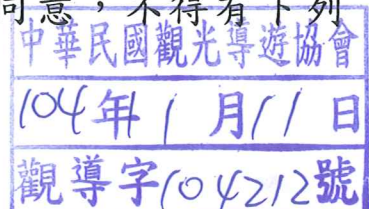 同意，不得有下列
中華民國觀光導遊協會
104年11月11日
觀導字104212號